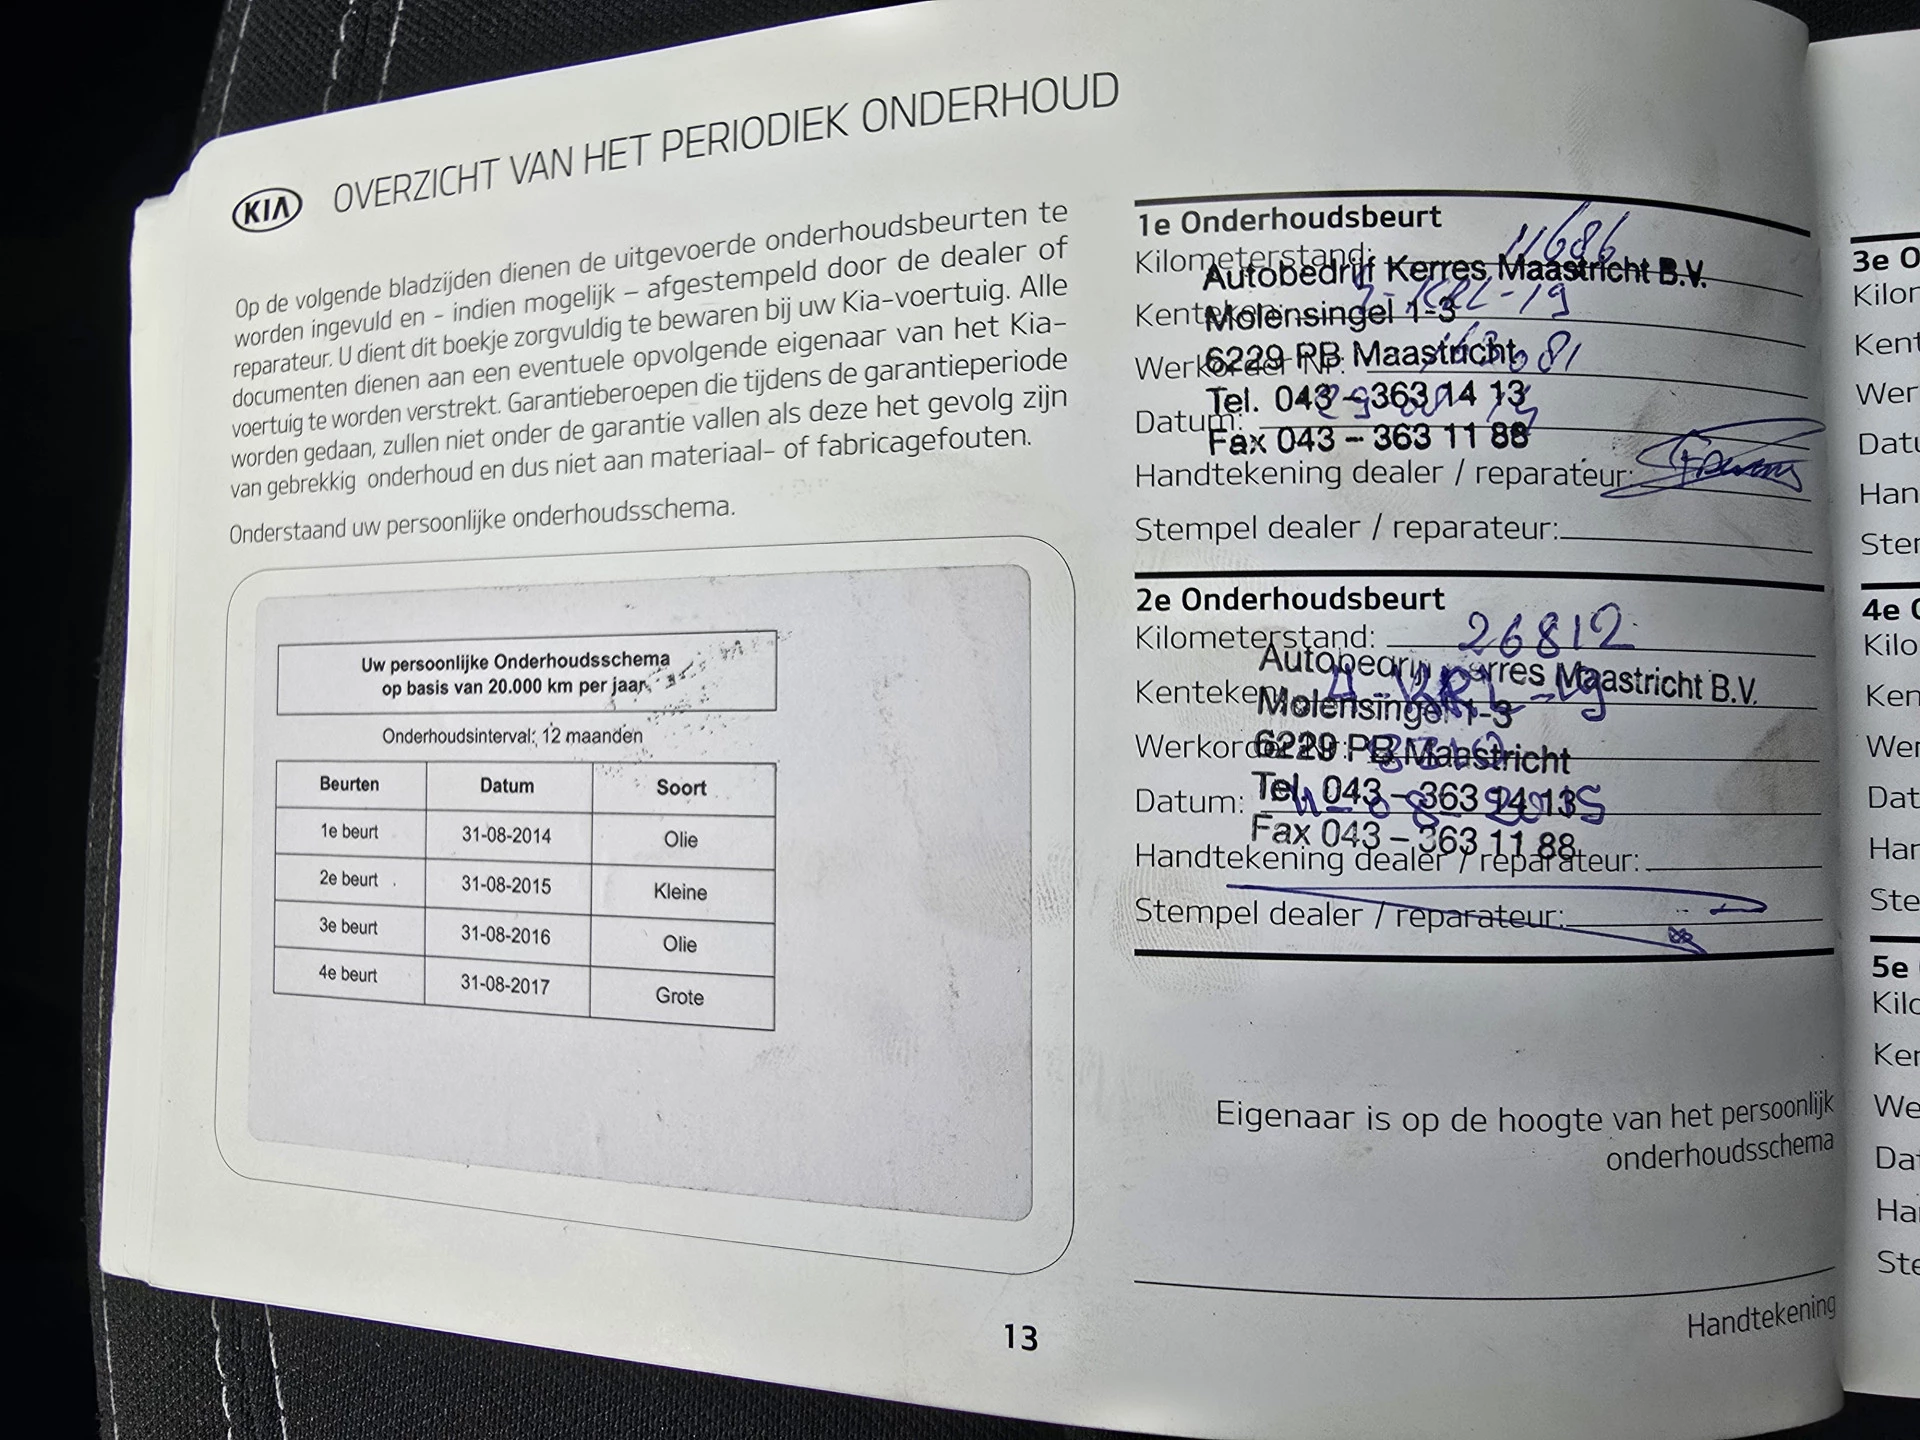 KIA OVERZICHT VAN HET PERIODIEK ONDERHOUD
Op de volgende bladzijden dienen de uitgevoerde onderhoudsbeurten te
worden ingevuld en – indien mogelijk – afgestempeld door de dealer of
reparateur. U dient dit boekje zorgvuldig te bewaren bij uw Kia-voertuig. Alle
documenten dienen aan een eventuele opvolgende eigenaar van het Kia-
voertuig te worden verstrekt. Garantieberoepen die tijdens de garantieperiode
worden gedaan, zullen niet onder de garantie vallen als deze het gevolg zijn
van gebrekkig onderhoud en dus niet aan materiaal- of fabricagefouten.
Onderstaand uw persoonlijke onderhoudsschema.
Uw persoonlijke Onderhoudsschema
op basis van 20.000 km per jaar
Onderhoudsinterval: 12 maanden
Beurten Datum Soort
1e beurt 31-08-2014 Olie
2e beurt 31-08-2015 Kleine
3e beurt 31-08-2016 Olie
4e beurt 31-08-2017 Grote
1e Onderhoudsbeurt
Kilometerstand: 11686
Autobedrijf Kerres Maastricht B.V.
Kenteken
Molensingel 1-3
Werkorder Nr:
6229 PB Maastricht
Tel. 043 – 363 14 13
Datum:
Fax 043 – 363 11 88
Handtekening dealer / reparateur:
Stempel dealer / reparateur:
2e Onderhoudsbeurt
Kilometerstand: 26812
Autobedrijf Kerres Maastricht B.V.
Kenteken
Molensingel 1-3
Werkorder Nr:
6229 PB Maastricht
Datum: 11-08-2015
Tel. 043 – 363 14 13
Fax 043 – 363 11 88
Handtekening dealer / reparateur:
Stempel dealer / reparateur:
Eigenaar is op de hoogte van het persoonlijk
onderhoudsschema
Handtekening
13
3e O
Kilor
Kent
Wer
Datu
Han
Ster
4e O
Kilo
Ken
Wer
Dat
Har
Ste
5e
Kilo
Ker
We
Dat
Har
Ste